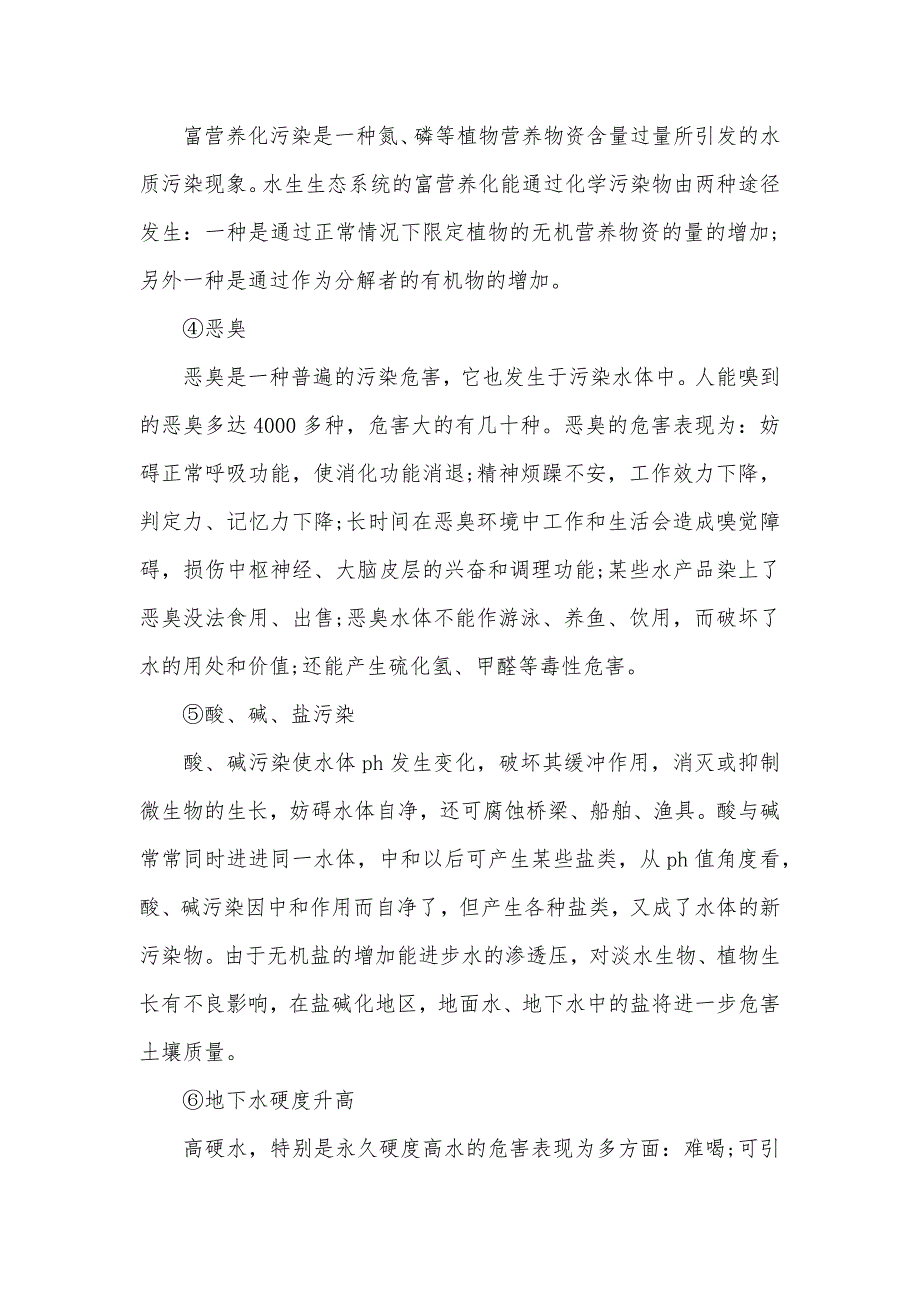 富营养化污染是一种氮、磷等植物营养物资含量过量所引发的水
质污染现象。水生生态系统的富营养化能通过化学污染物由两种途径
发生：一种是通过正常情况下限定植物的无机营养物资的量的增加;
另外一种是通过作为分解者的有机物的增加。
④恶臭
恶臭是一种普遍的污染危害，它也发生于污染水体中。人能嗅到
的恶臭多达 4000 多种，危害大的有几十种。恶臭的危害表现为：妨
碍正常呼吸功能，使消化功能消退;精神烦躁不安，工作效力下降，
判定力、记忆力下降;长时间在恶臭环境中工作和生活会造成嗅觉障
碍，损伤中枢神经、大脑皮层的兴奋和调理功能;某些水产品染上了
恶臭没法食用、出售;恶臭水体不能作游泳、养鱼、饮用，而破坏了
水的用处和价值;还能产生硫化氢、甲醛等毒性危害。
⑤酸、碱、盐污染
酸、碱污染使水体 ph 发生变化，破坏其缓冲作用，消灭或抑制
微生物的生长，妨碍水体自净，还可腐蚀桥梁、船舶、渔具。酸与碱
常常同时进进同一水体，中和以后可产生某些盐类，从 ph 值角度看，
酸、碱污染因中和作用而自净了，但产生各种盐类，又成了水体的新
污染物。由于无机盐的增加能进步水的渗透压，对淡水生物、植物生
长有不良影响，在盐碱化地区，地面水、地下水中的盐将进一步危害
土壤质量。
⑥地下水硬度升高
高硬水，特别是永久硬度高水的危害表现为多方面：难喝;可引